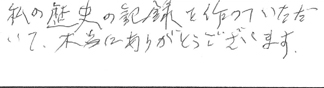 私の歴史の記録を作っていただ
いて、本当にありがとうございます。